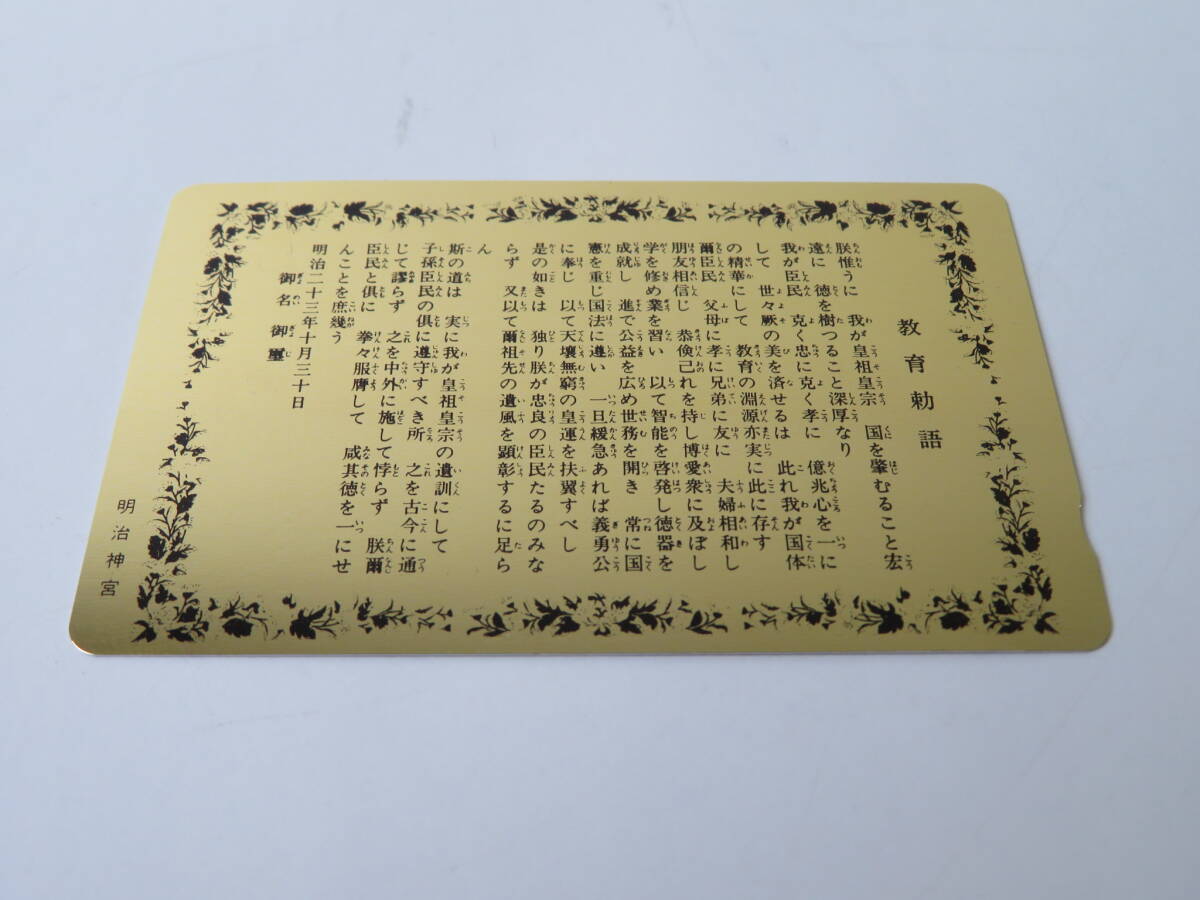 教育勅語
朕惟うに 我が皇祖皇宗 国を肇むること宏
遠に 徳を樹つること深厚なり
我が臣民 克く忠に克く孝に 億兆心を一に
して 世々厥の美を済せるは 此れ我が国体
の精華にして 教育の淵源亦実に此に存す
爾臣民 父母に孝に兄弟に友に 夫婦相和し
朋友相信じ 恭倹己れを持し博愛衆に及ぼし
学を修め業を習い 以て智能を啓発し徳器を
成就し 進で公益を広め世務を開き 常に国
憲を重じ国法に遵い 一旦緩急あれば義勇公
に奉じ 以て天壌無窮の皇運を扶翼すべし
是の如きは 独り朕が忠良の臣民たるのみな
らず 又以て爾祖先の遺風を顕彰するに足ら
ん
斯の道は 実に我が皇祖皇宗の遺訓にして
子孫臣民の倶に遵守すべき所 之を古今に通
じて謬らず 之を中外に施して悖らず 朕爾
臣民と倶に 拳々服膺して 咸其徳を一にせ
んことを庶幾う
明治二十三年十月三十日
御名 御璽
明治神宮